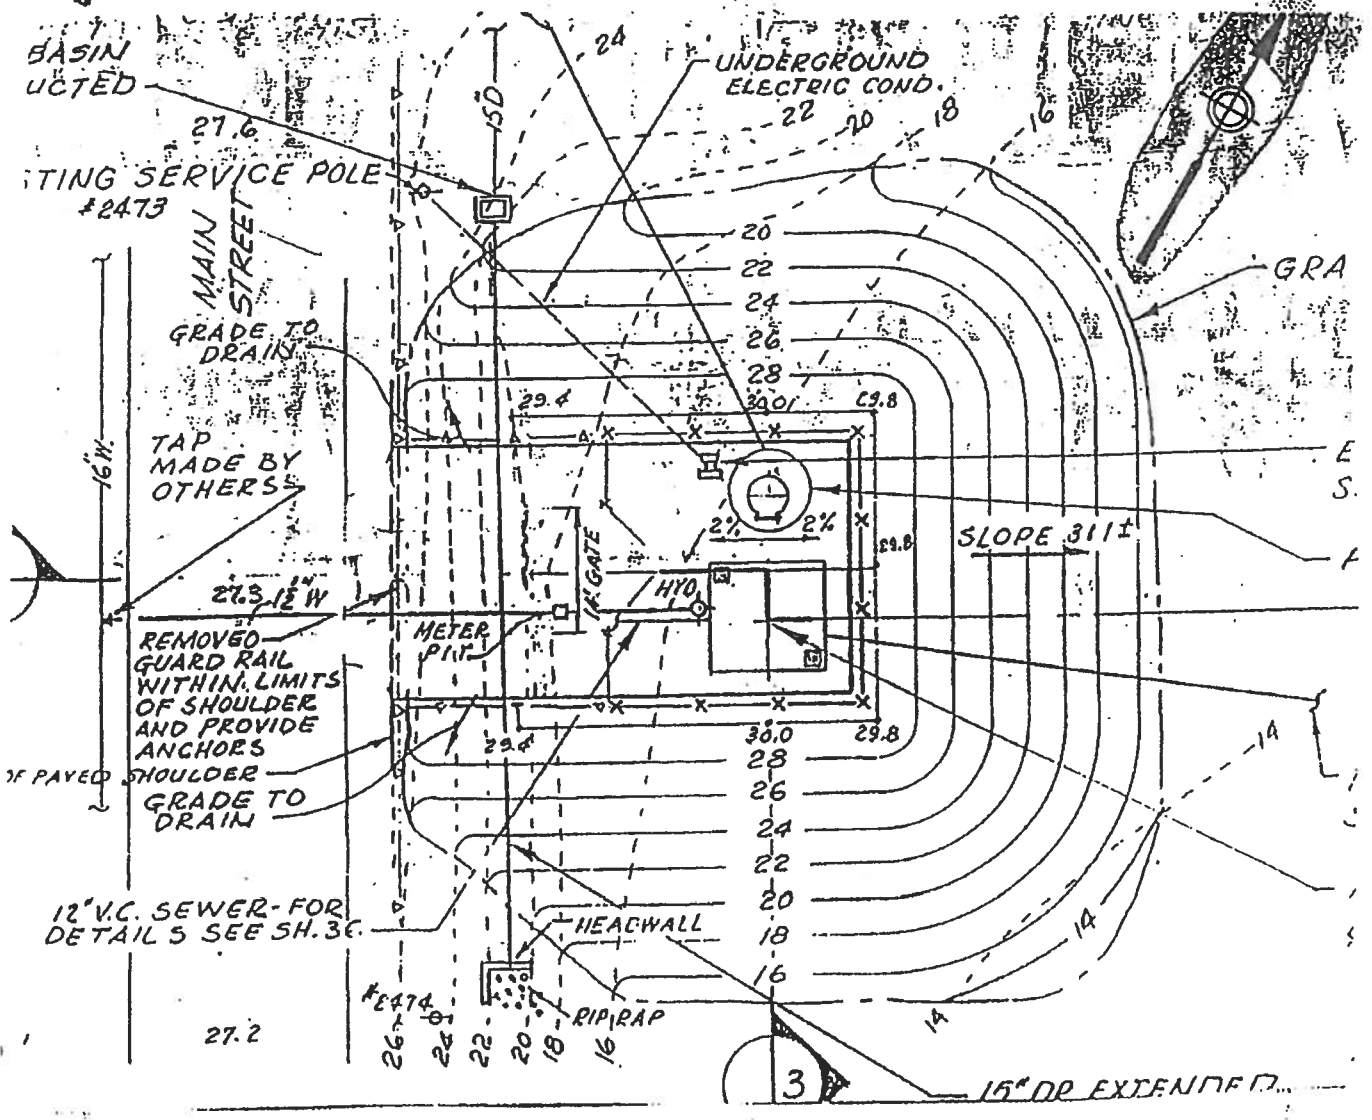 BASIN
UCTED
27.6
TING SERVICE POLE
#2473
MAIN
STREET
15"D
24
UNDERGROUND
ELECTRIC COND.
22
20
18
16
GRA
20
22
24
26
28
GRADE TO
DRAIN
29.4
30.01
29.8
16"W.
TAP
MADE BY
OTHERS
E
S.
2%
2%
SLOPE 3:1±
29.8
14' GATE
HYD
27.3
1½" W
METER
PIT
REMOVED
GUARD RAIL
WITHIN LIMITS
OF SHOULDER
AND PROVIDE
ANCHORS
OF PAVED SHOULDER
GRADE TO
DRAIN
29.4
30.0
29.8
28
26
24
22
20
18
16
14
14
14
12" V.C. SEWER-FOR
DETAILS SEE SH. 3C.
HEADWALL
RIP RAP
#2474
27.2
26
24
22
20
18
16
3
15" DP EXTENDED